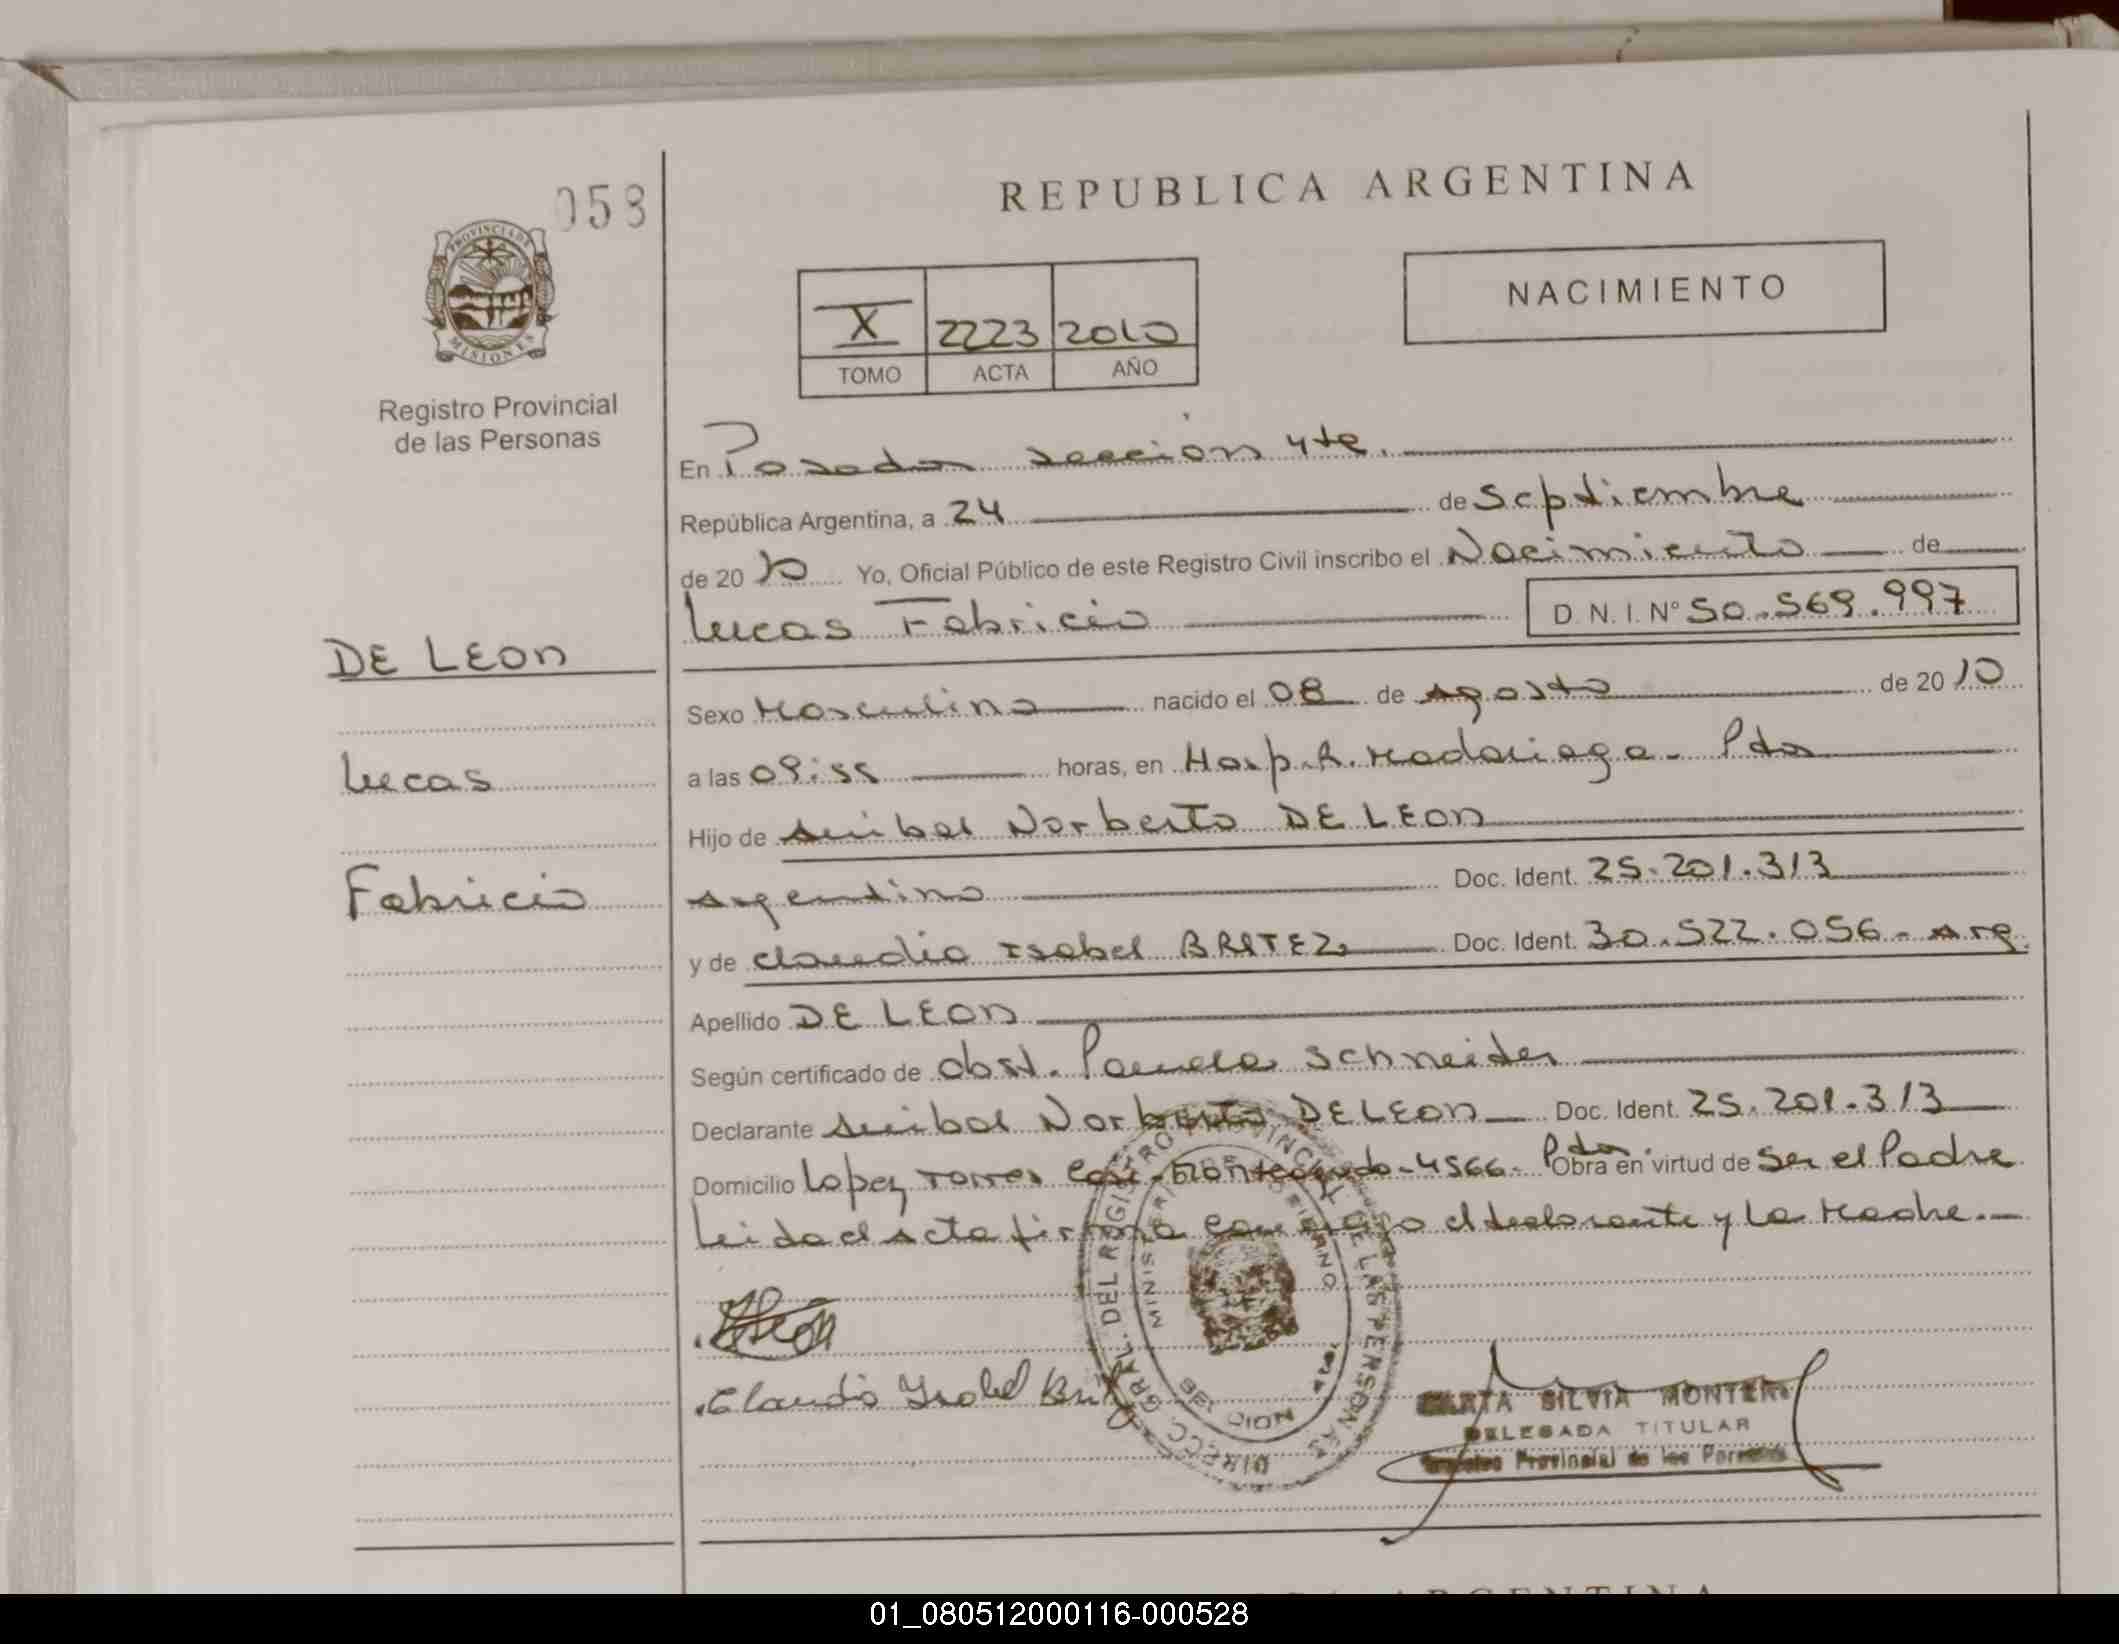 REPUBLICA ARGENTINA
058
PROVINCIA DE
MISIONES
Registro Provincial
de las Personas
NACIMIENTO
X 2223 2010
TOMO ACTA AÑO
En Posadas sección 4ta.
República Argentina, a 24 de Septiembre
de 20 10 Yo, Oficial Público de este Registro Civil inscribo el Nacimiento de
Lucas Fabricio D. N. I. N° 50.569.997
DE LEON
Lucas
Fabricio
Sexo Masculino nacido el 08 de Agosto de 20 10
a las 09:55 horas, en Hosp. R. Madariaga - Pdas
Hijo de Anibal Norberto DE LEON
Argentino Doc. Ident. 25.201.313
y de Claudia Isabel BRITEZ Doc. Ident. 30.522.056 - Arg.
Apellido DE LEON
Según certificado de Obst. Pamela Schneider
Declarante Anibal Norberto DE LEON Doc. Ident. 25.201.313
Domicilio Lopez Torres casi Monteagudo - 4566 - Pdas Obra en virtud de Ser el Padre
Leida el Acta firma conmigo el declarante y La Madre.
Claudia Ysabel
DIRECC. GRAL. DEL REGISTRO PROVINCIAL DE LAS PERSONAS
MINISTERIO DE GOBIERNO
SILVIA MONTERO
DELEGADA TITULAR
Registro Provincial de las Personas
REPUBLICA ARGENTINA
01_080512000116-000528